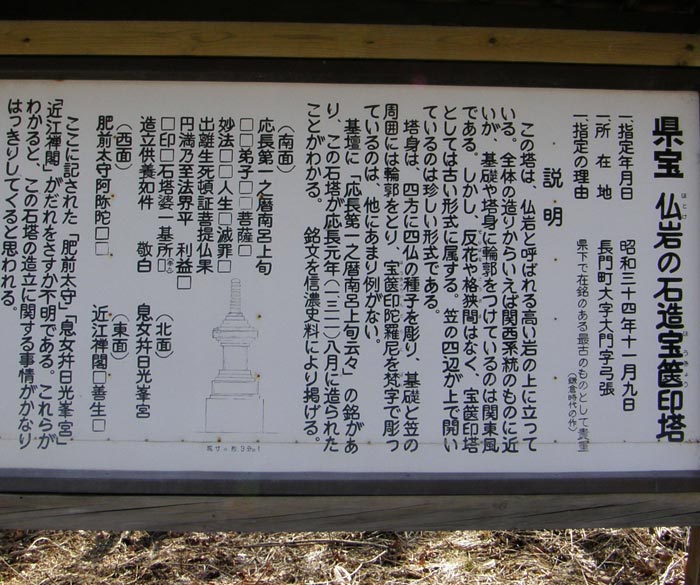 県宝 仏岩の石造宝篋印塔
一指定年月日 昭和三十四年十一月九日
一所在地 長門町大字大門字弓張
一指定の理由 県下で在銘のある最古のものとして貴重
(鎌倉時代の作)
説明
この塔は、仏岩と呼ばれる高い岩の上に立って
いる。全体の造りからいえば関西系統のものに近
いが、基礎や塔身に輪郭をつけているのは関東風
である。しかし、反花や格狭間はなく、宝篋印塔
としては古い形式に属する。笠の四辺が上で開い
ているのは珍しい形式である。
塔身は、四方に四仏の種子を彫り、基礎と笠の
周囲には輪郭をとり、宝篋印陀羅尼を梵字で彫っ
ているのは、他にあまり例がない。
基壇に「応長第一之暦南呂上旬云々」の銘があ
り、この石塔が応長元年(一三一一)八月に造られた
ことがわかる。 銘文を信濃史料により掲げる。
(南面)
応長第一之暦南呂上旬
□□弟子□□菩薩□
妙法□□人生□滅罪□
出離生死頓証菩提仏果
円満乃至法界平 利益□
□印□石塔婆一基所□
造立供養如件 敬白
(西面)
肥前太守阿弥陀□□
(北面)
息女并日光峯宮
(東面)
近江禅閣□善生□
ここに記された「肥前太守」「息女并日光峯宮」
「近江禅閣」がだれをさすか不明である。これらが
わかると、この石塔の造立に関する事情がかなり
はっきりしてくると思われる。